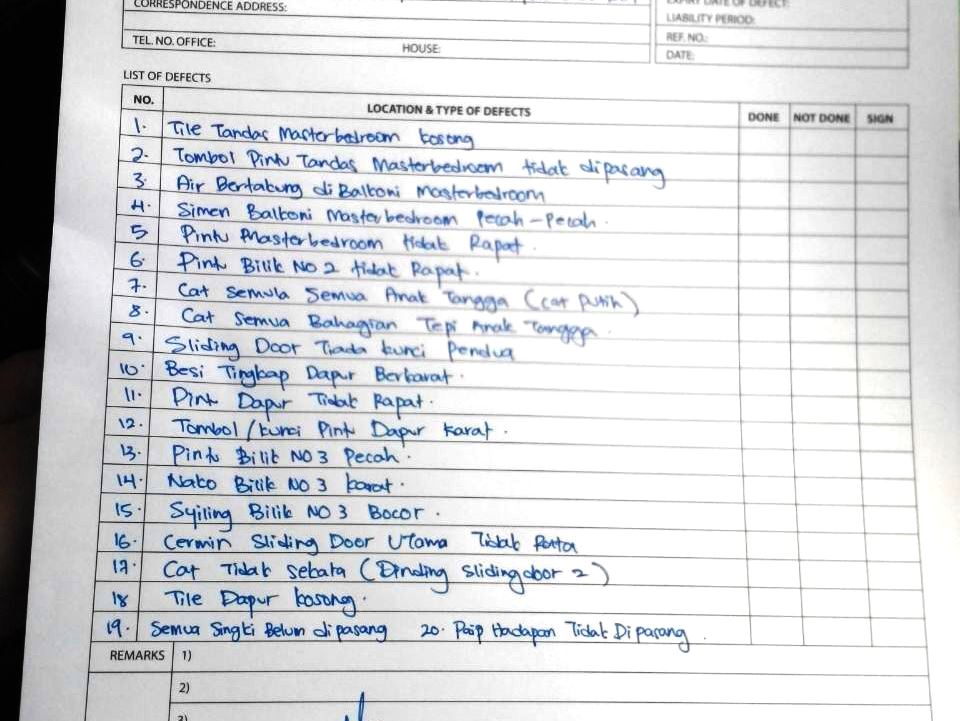 CORRESPONDENCE ADDRESS:
EXPIRY DATE OF DEFECT
LIABILITY PERIOD:
TEL. NO. OFFICE: HOUSE:
REF. NO.:
DATE:
LIST OF DEFECTS
NO. LOCATION & TYPE OF DEFECTS DONE NOT DONE SIGN
1. Tile Tandas Masterbedroom kosong
2. Tombol Pintu Tandas Masterbedroom tidak dipasang
3. Air Bertakung di Balkoni Masterbedroom
4. Simen Balkoni Masterbedroom Pecah-Pecah.
5 Pintu Masterbedroom tidak Rapat.
6. Pintu Bilik NO 2 tidak Rapat.
7. Cat semula Semua Anak Tangga (cat putih)
8. Cat Semua Bahagian Tepi Anak Tangga.
9. Sliding Door Tiada kunci Pendua
10. Besi Tingkap Dapur Berkarat.
11. Pintu Dapur Tidak Rapat.
12. Tombol/kunci Pintu Dapur Karat.
13. Pintu Bilik NO 3 Pecah.
14. Nako Bilik NO 3 karat.
15. Syiling Bilik NO 3 Bocor.
16. Cermin Sliding Door Utama Tidak
17. Cat Tidak sekata (Dinding sliding door 2)
18 Tile Dapur kosong.
19. Semua Singki Belum dipasang 20. Paip Hadapan Tidak Dipasang.
REMARKS 1)
2)
3)